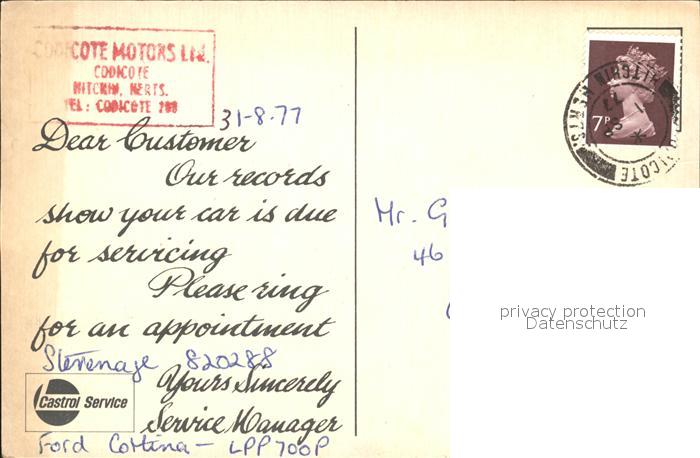 CODICOTE MOTORS LTD.
CODICOTE
HITCHIN, HERTS.
TEL: CODICOTE 288
31-8-77
Dear Customer
Our records
show your car is due
for servicing
Please ring
for an appointment
Stevenage 820288
Yours Sincerely
Castrol Service
Service Manager
Ford Cortina - LPP 700P
7P
HITCHIN HERTS
CODICOTE
Mr. G
46
privacy protection
Datenschutz